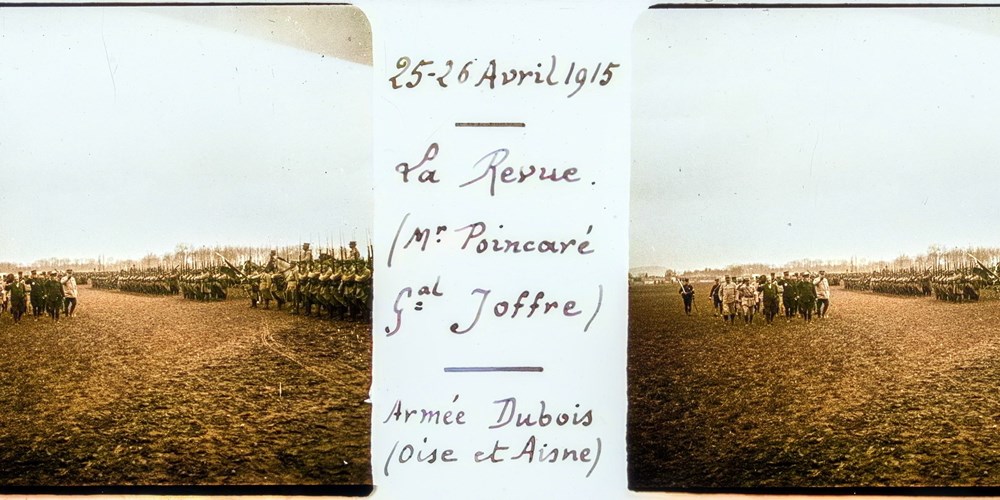 25-26 Avril 1915
La Revue.
(Mr Poincaré
Gal Joffre)
Armée Dubois
(Oise et Aisne)